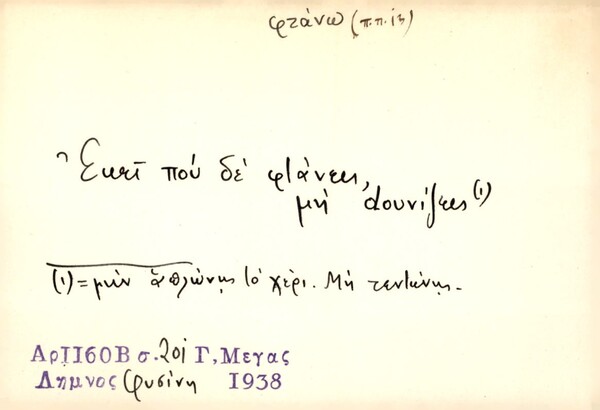 φτάνω (π.π. ιз)
Ἐκεῖ ποὺ δὲ φτάνεις,
μὴ dουνίζεις (1)
(1) = μὴν ἁπλώνῃς τὸ χέρι. Μὴ τεντώνῃς.
Αρ1160Β σ. 201 Γ, Μεγας
Λημνος Φυσίνη 1938